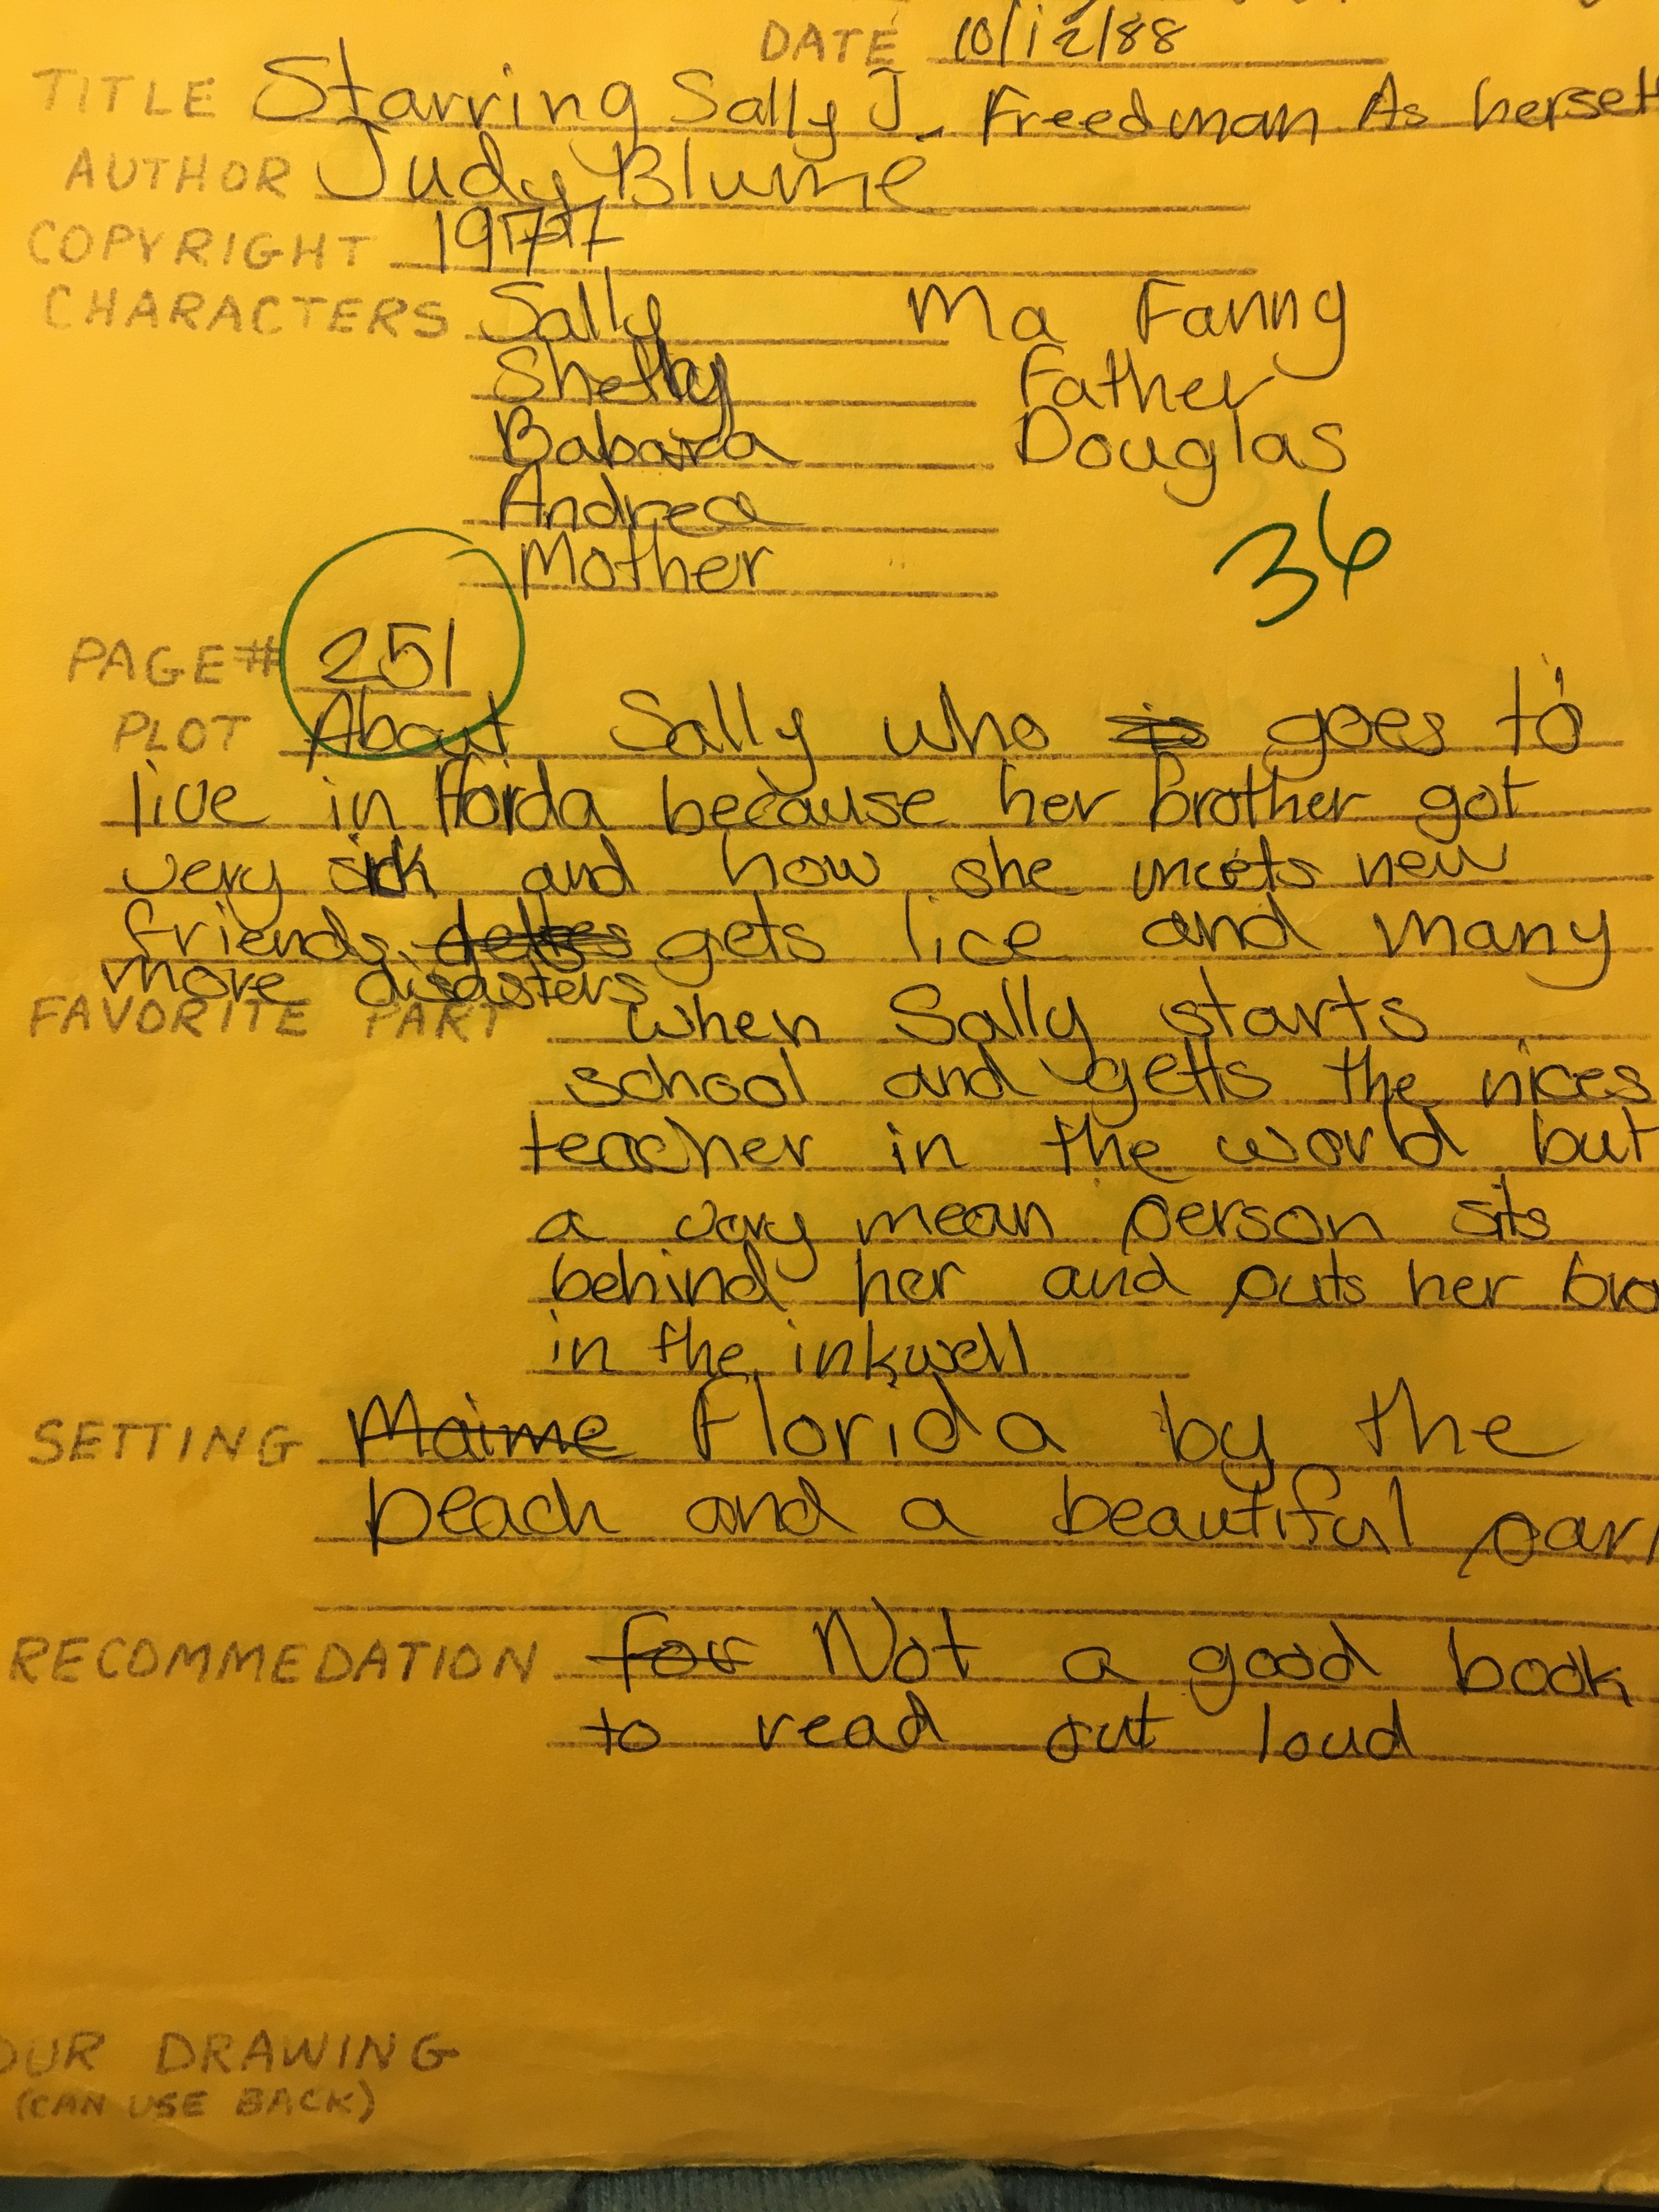 DATE 10/12/88
TITLE Starring Sally J. Freedman As herself
AUTHOR Judy Blume
COPYRIGHT 1977
CHARACTERS Sally Ma Fanny
Shelby Father
Babara Douglas
Andrea
Mother
36
PAGE# 251
PLOT About Sally who is goes to
live in Florida because her brother got
very sick and how she meets new
friends, gets lice and many
more disasters
FAVORITE PART when Sally starts
school and getts the nices
teacher in the world but
a very mean person sits
behind her and puts her bra
in the inkwell
SETTING Maime Florida by the
beach and a beautiful par
RECOMMEDATION for Not a good book
to read out loud
OUR DRAWING
(CAN USE BACK)